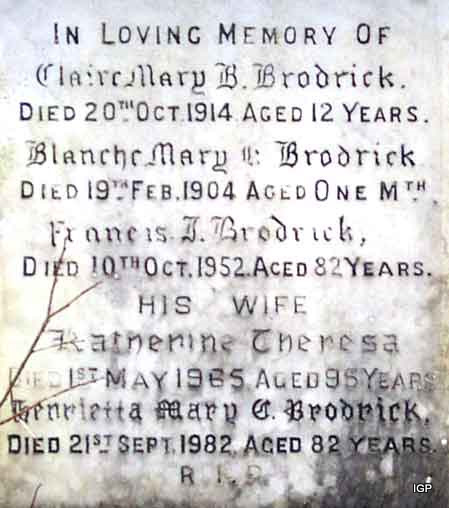 IN LOVING MEMORY OF
Claire Mary B. Brodrick.
DIED 20TH OCT. 1914 AGED 12 YEARS.
Blanche Mary Brodrick
DIED 19TH FEB. 1904 AGED ONE MTH.
Francis J. Brodrick,
DIED 10TH OCT. 1952. AGED 82 YEARS.
HIS WIFE
Katherine Theresa
DIED 1ST MAY 1965. AGED 95 YEARS
Henrietta Mary C. Brodrick,
DIED 21ST SEPT. 1982. AGED 82 YEARS.
R.I.P.
IGP